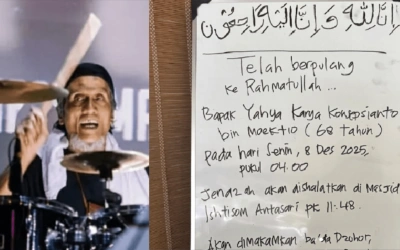 إنا لله وإنا إليه راجعون
Telah berpulang
ke Rahmatullah ...
Bapak Yahya Karya Konepsianto
bin Moektio (68 tahun)
pada hari Senin, 8 Des 2025,
pukul 04.00
Jenazah akan dishalatkan di Masjid
Antasari pk 11.48.
Akan dimakamkan ba'da Dzuhor,